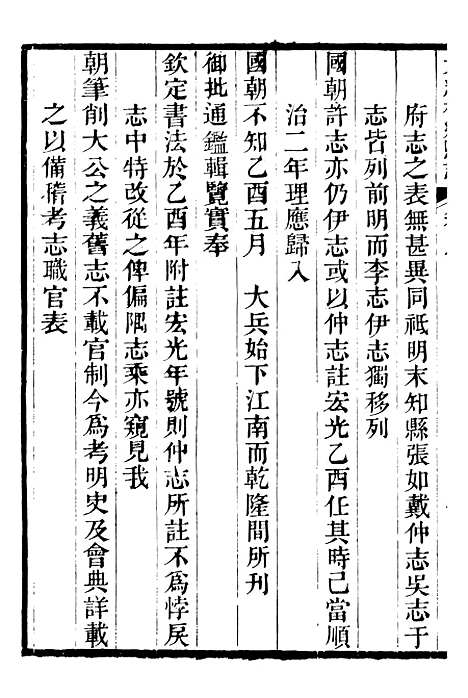 府志之表無甚異同祗明末知縣張如戴仲志吳志于
志皆列前明而李志伊志獨移列
國朝許志亦仍伊志或以仲志註宏光乙酉任其時已當順
治二年理應歸入
國朝不知乙酉五月　大兵始下江南而乾隆間所刊
御批通鑑輯覽實奉
欽定書法於乙酉年附註宏光年號則仲志所註不爲悖戾
志中特改從之俾偏隅志乘亦窺見我
朝筆削大公之義舊志不載官制今爲考明史及會典詳載
之以備稽考志職官表